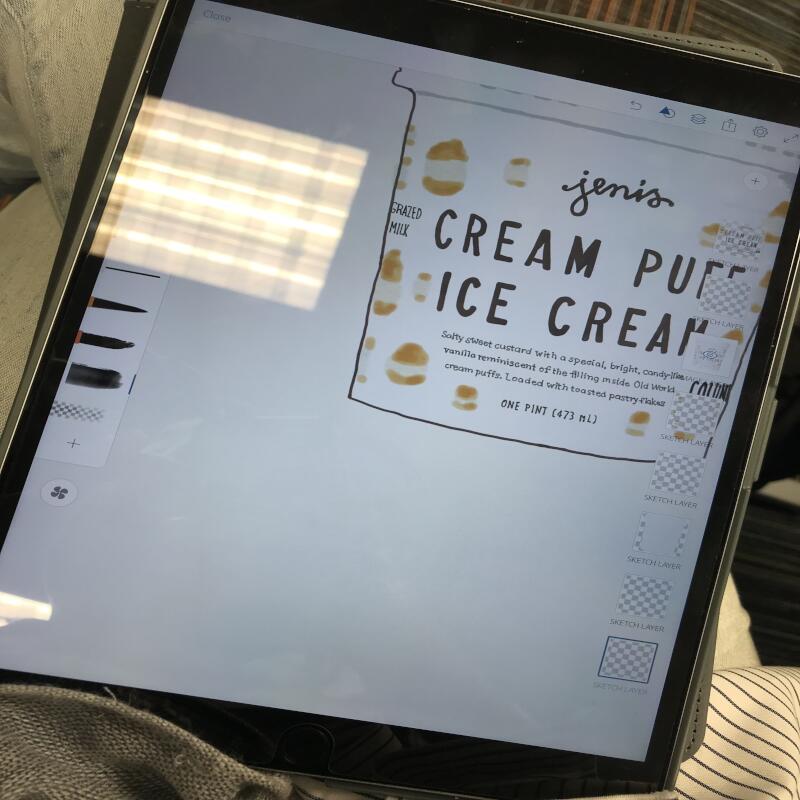 Close
jenis
GRAZED
MILK
CREAM PUFF
ICE CREAM
Salty sweet custard with a special, bright, candy-like
vanilla reminiscent of the filling inside Old World
cream puffs. Loaded with toasted pastry flakes
ONE PINT (473 ML)
SKETCH LAYER
SKETCH LAYER
SKETCH LAYER
SKETCH LAYER
SKETCH LAYER
SKETCH LAYER
SKETCH LAYER